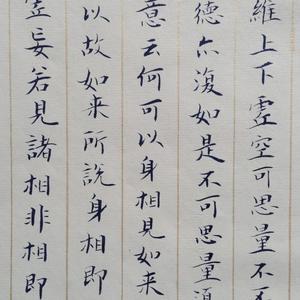 維上下虛空可思量不不
德亦復如是不可思量須
意云何可以身相見如来
以故如来所說身相即
虛妄若見諸相非相即